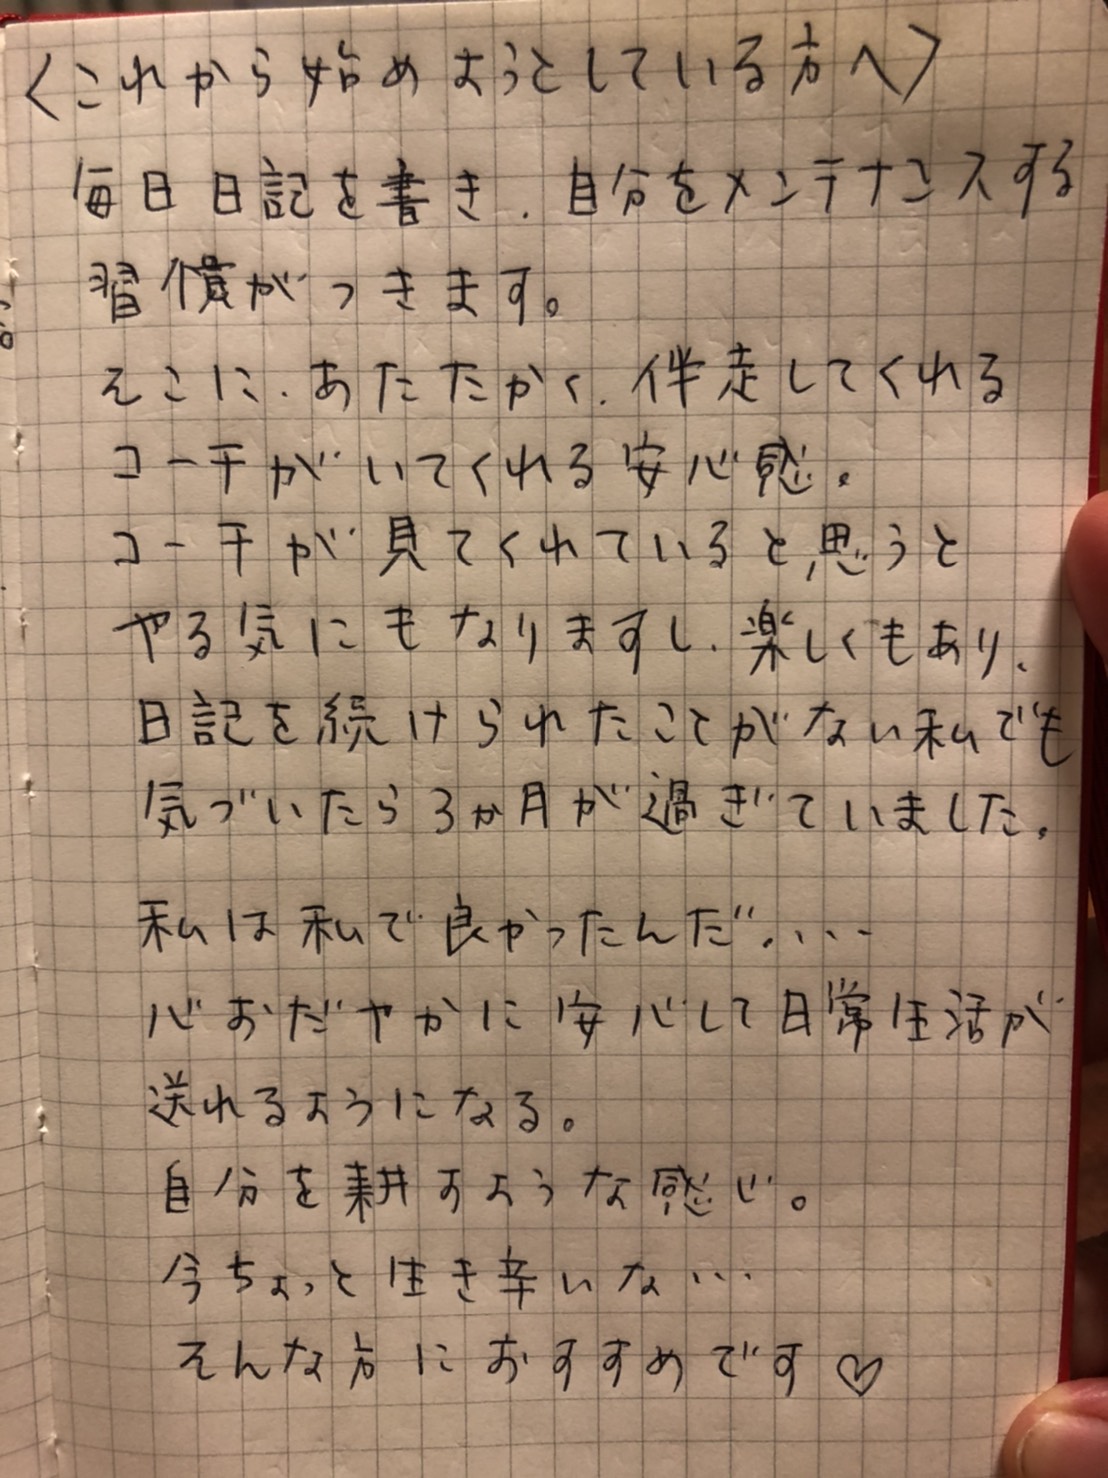 〈これから始めようとしている方へ〉
毎日日記を書き、自分をメンテナンスする
習慣がつきます。
そこに、あたたかく、伴走してくれる
コーチがいてくれる安心感。
コーチが見てくれていると思うと
やる気にもなりますし、楽しくもあり、
日記を続けられたことがない私でも
気づいたら3か月が過ぎていました。
私は私で良かったんだ、、、、
心おだやかに安心して日常生活が
送れるようになる。
自分を耕すような感じ。
今ちょっと生き辛いな…
そんな方におすすめです♡